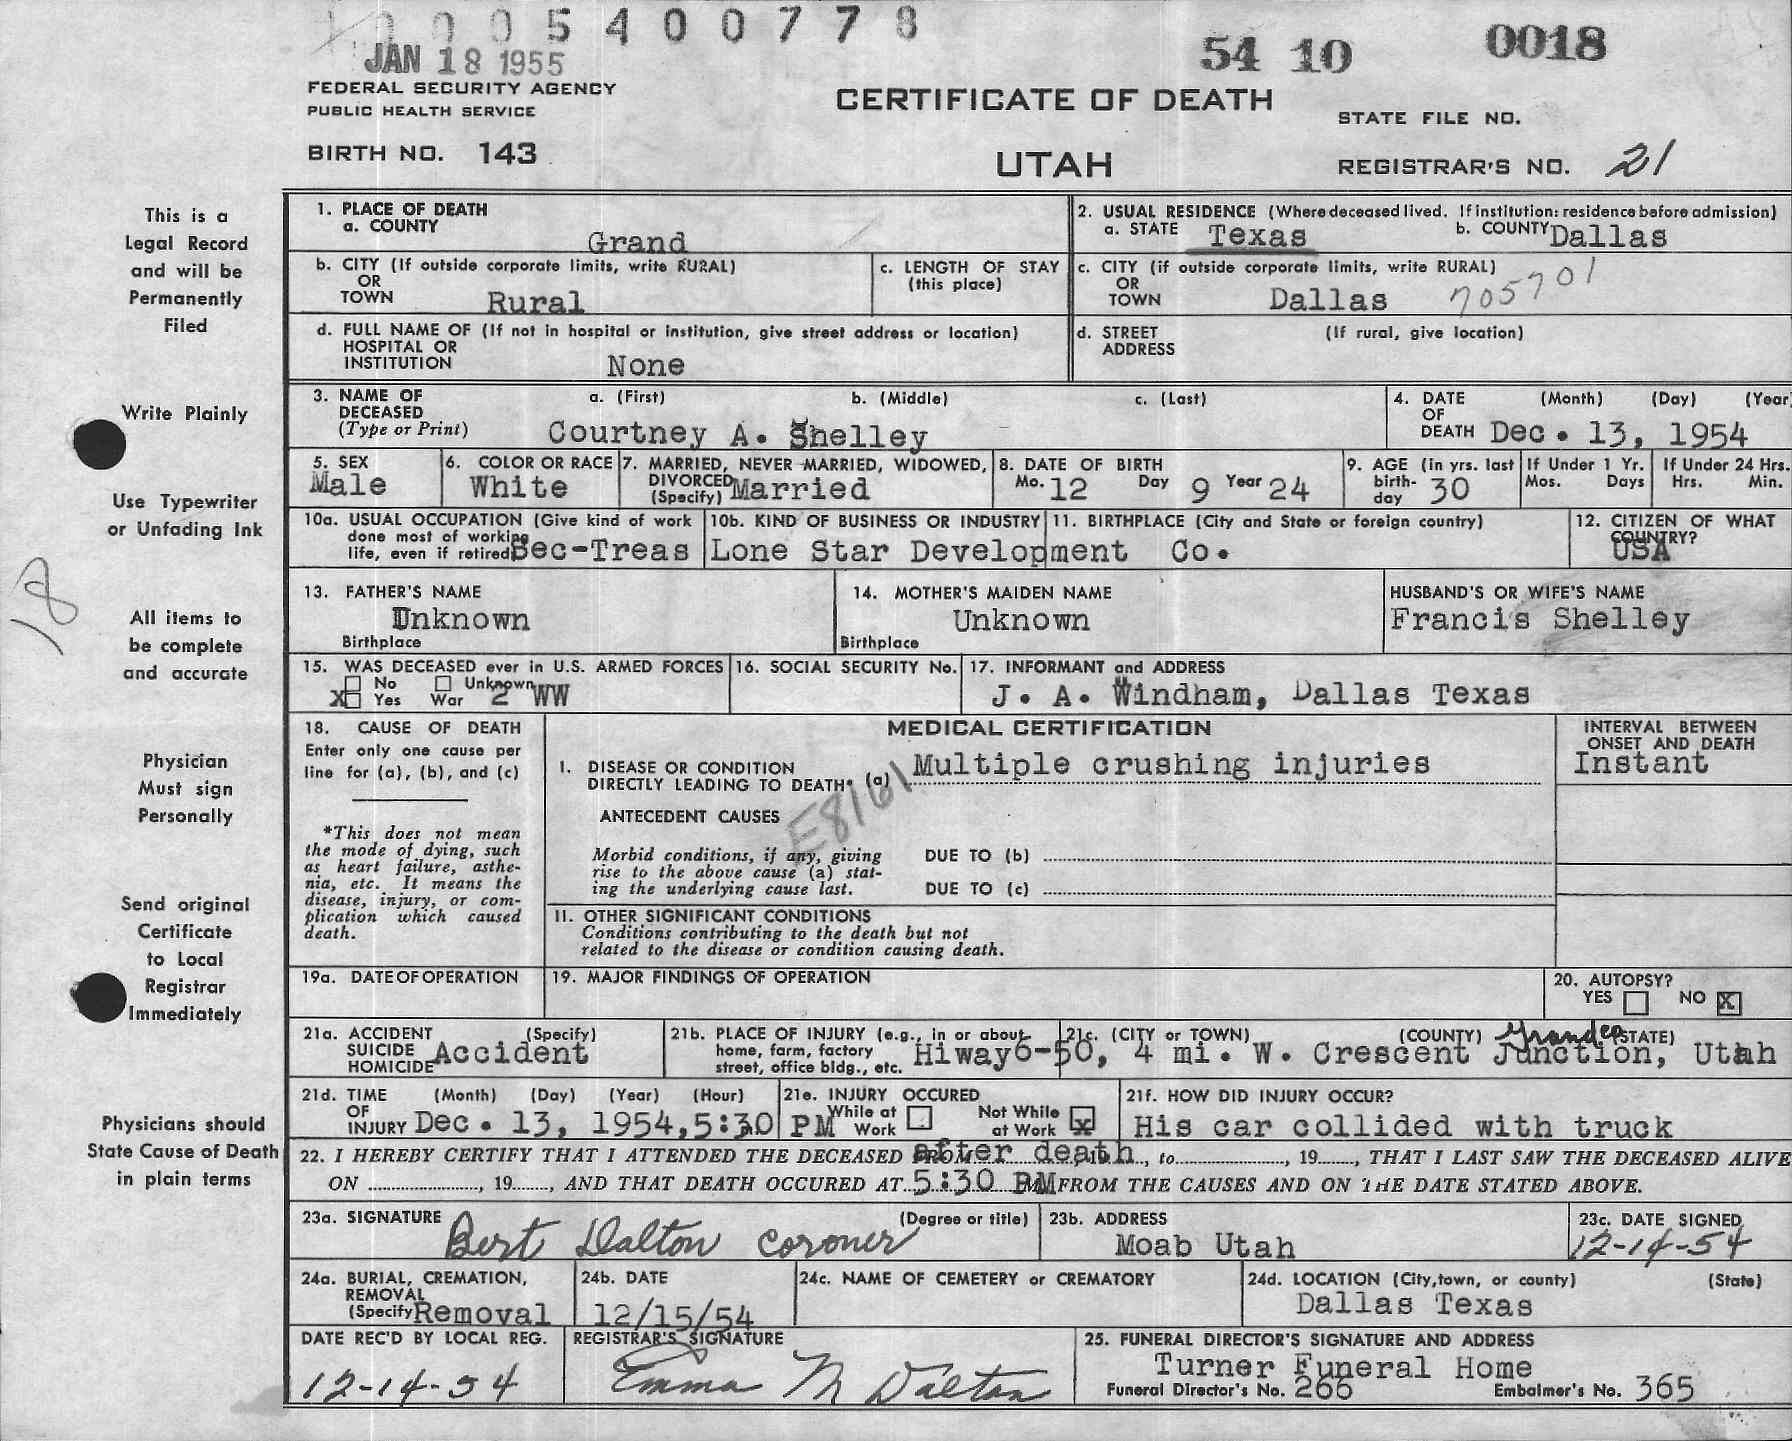 0005400778
JAN 18 1955
54 10 0018
FEDERAL SECURITY AGENCY
PUBLIC HEALTH SERVICE
CERTIFICATE OF DEATH
STATE FILE NO.
BIRTH NO. 143
UTAH
REGISTRAR'S NO. 21
This is a
Legal Record
and will be
Permanently
Filed
Write Plainly
Use Typewriter
or Unfading Ink
18
All items to
be complete
and accurate
Physician
Must sign
Personally
Send original
Certificate
to Local
Registrar
Immediately
Physicians should
State Cause of Death
in plain terms
1. PLACE OF DEATH
a. COUNTY
Grand
2. USUAL RESIDENCE (Where deceased lived. If institution: residence before admission)
a. STATE Texas b. COUNTY Dallas
b. CITY (If outside corporate limits, write RURAL)
OR
TOWN Rural
c. LENGTH OF STAY
(this place)
c. CITY (if outside corporate limits, write RURAL)
OR
TOWN Dallas 705701
d. FULL NAME OF (If not in hospital or institution, give street address or location)
HOSPITAL OR
INSTITUTION None
d. STREET (If rural, give location)
ADDRESS
3. NAME OF a. (First) b. (Middle) c. (Last)
DECEASED
(Type or Print) Courtney A. Shelley
4. DATE (Month) (Day) (Year
OF
DEATH Dec. 13, 1954
5. SEX
Male
6. COLOR OR RACE
White
7. MARRIED, NEVER MARRIED, WIDOWED,
DIVORCED
(Specify) Married
8. DATE OF BIRTH
Mo. 12 Day 9 Year 24
9. AGE (in yrs. last
birth-
day 30
If Under 1 Yr.
Mos. Days
If Under 24 Hrs.
Hrs. Min.
10a. USUAL OCCUPATION (Give kind of work
done most of working
life, even if retired Sec-Treas
10b. KIND OF BUSINESS OR INDUSTRY
Lone Star Development Co.
11. BIRTHPLACE (City and State or foreign country)
12. CITIZEN OF WHAT
COUNTRY?
USA
13. FATHER'S NAME
Unknown
Birthplace
14. MOTHER'S MAIDEN NAME
Unknown
Birthplace
HUSBAND'S OR WIFE'S NAME
Francis Shelley
15. WAS DECEASED ever in U.S. ARMED FORCES
No Unknown
X Yes War 2 WW
16. SOCIAL SECURITY No.
17. INFORMANT and ADDRESS
J. A. Windham, Dallas Texas
18. CAUSE OF DEATH
Enter only one cause per
line for (a), (b), and (c)
*This does not mean
the mode of dying, such
as heart failure, asthe-
nia, etc. It means the
disease, injury, or com-
plication which caused
death.
MEDICAL CERTIFICATION
I. DISEASE OR CONDITION
DIRECTLY LEADING TO DEATH* (a) Multiple crushing injuries
ANTECEDENT CAUSES
Morbid conditions, if any, giving
rise to the above cause (a) stat-
ing the underlying cause last.
DUE TO (b)
DUE TO (c)
II. OTHER SIGNIFICANT CONDITIONS
Conditions contributing to the death but not
related to the disease or condition causing death.
INTERVAL BETWEEN
ONSET AND DEATH
Instant
19a. DATE OF OPERATION
19. MAJOR FINDINGS OF OPERATION
20. AUTOPSY?
YES NO X
21a. ACCIDENT (Specify)
SUICIDE
HOMICIDE Accident
21b. PLACE OF INJURY (e.g., in or about
home, farm, factory
street, office bldg., etc.
21c. (CITY or TOWN) (COUNTY) Grand Co (STATE)
Hiway 6-50, 4 mi. W. Crescent Junction, Utah
21d. TIME (Month) (Day) (Year) (Hour)
OF
INJURY Dec. 13, 1954, 5:30 PM
21e. INJURY OCCURED
While at
Work
Not While
at Work X
21f. HOW DID INJURY OCCUR?
His car collided with truck
22. I HEREBY CERTIFY THAT I ATTENDED THE DECEASED FROM after death, 19, to, 19, THAT I LAST SAW THE DECEASED ALIVE
ON, 19, AND THAT DEATH OCCURED AT 5:30 PM FROM THE CAUSES AND ON THE DATE STATED ABOVE.
23a. SIGNATURE (Degree or title)
Bert Dalton coroner
23b. ADDRESS
Moab Utah
23c. DATE SIGNED
12-14-54
24a. BURIAL, CREMATION,
REMOVAL
(Specify Removal
24b. DATE
12/15/54
24c. NAME OF CEMETERY or CREMATORY
24d. LOCATION (City, town, or county) (State)
Dallas Texas
DATE REC'D BY LOCAL REG.
12-14-54
REGISTRAR'S SIGNATURE
Emma M Dalton
25. FUNERAL DIRECTOR'S SIGNATURE AND ADDRESS
Turner Funeral Home
Funeral Director's No. 266 Embalmer's No. 365